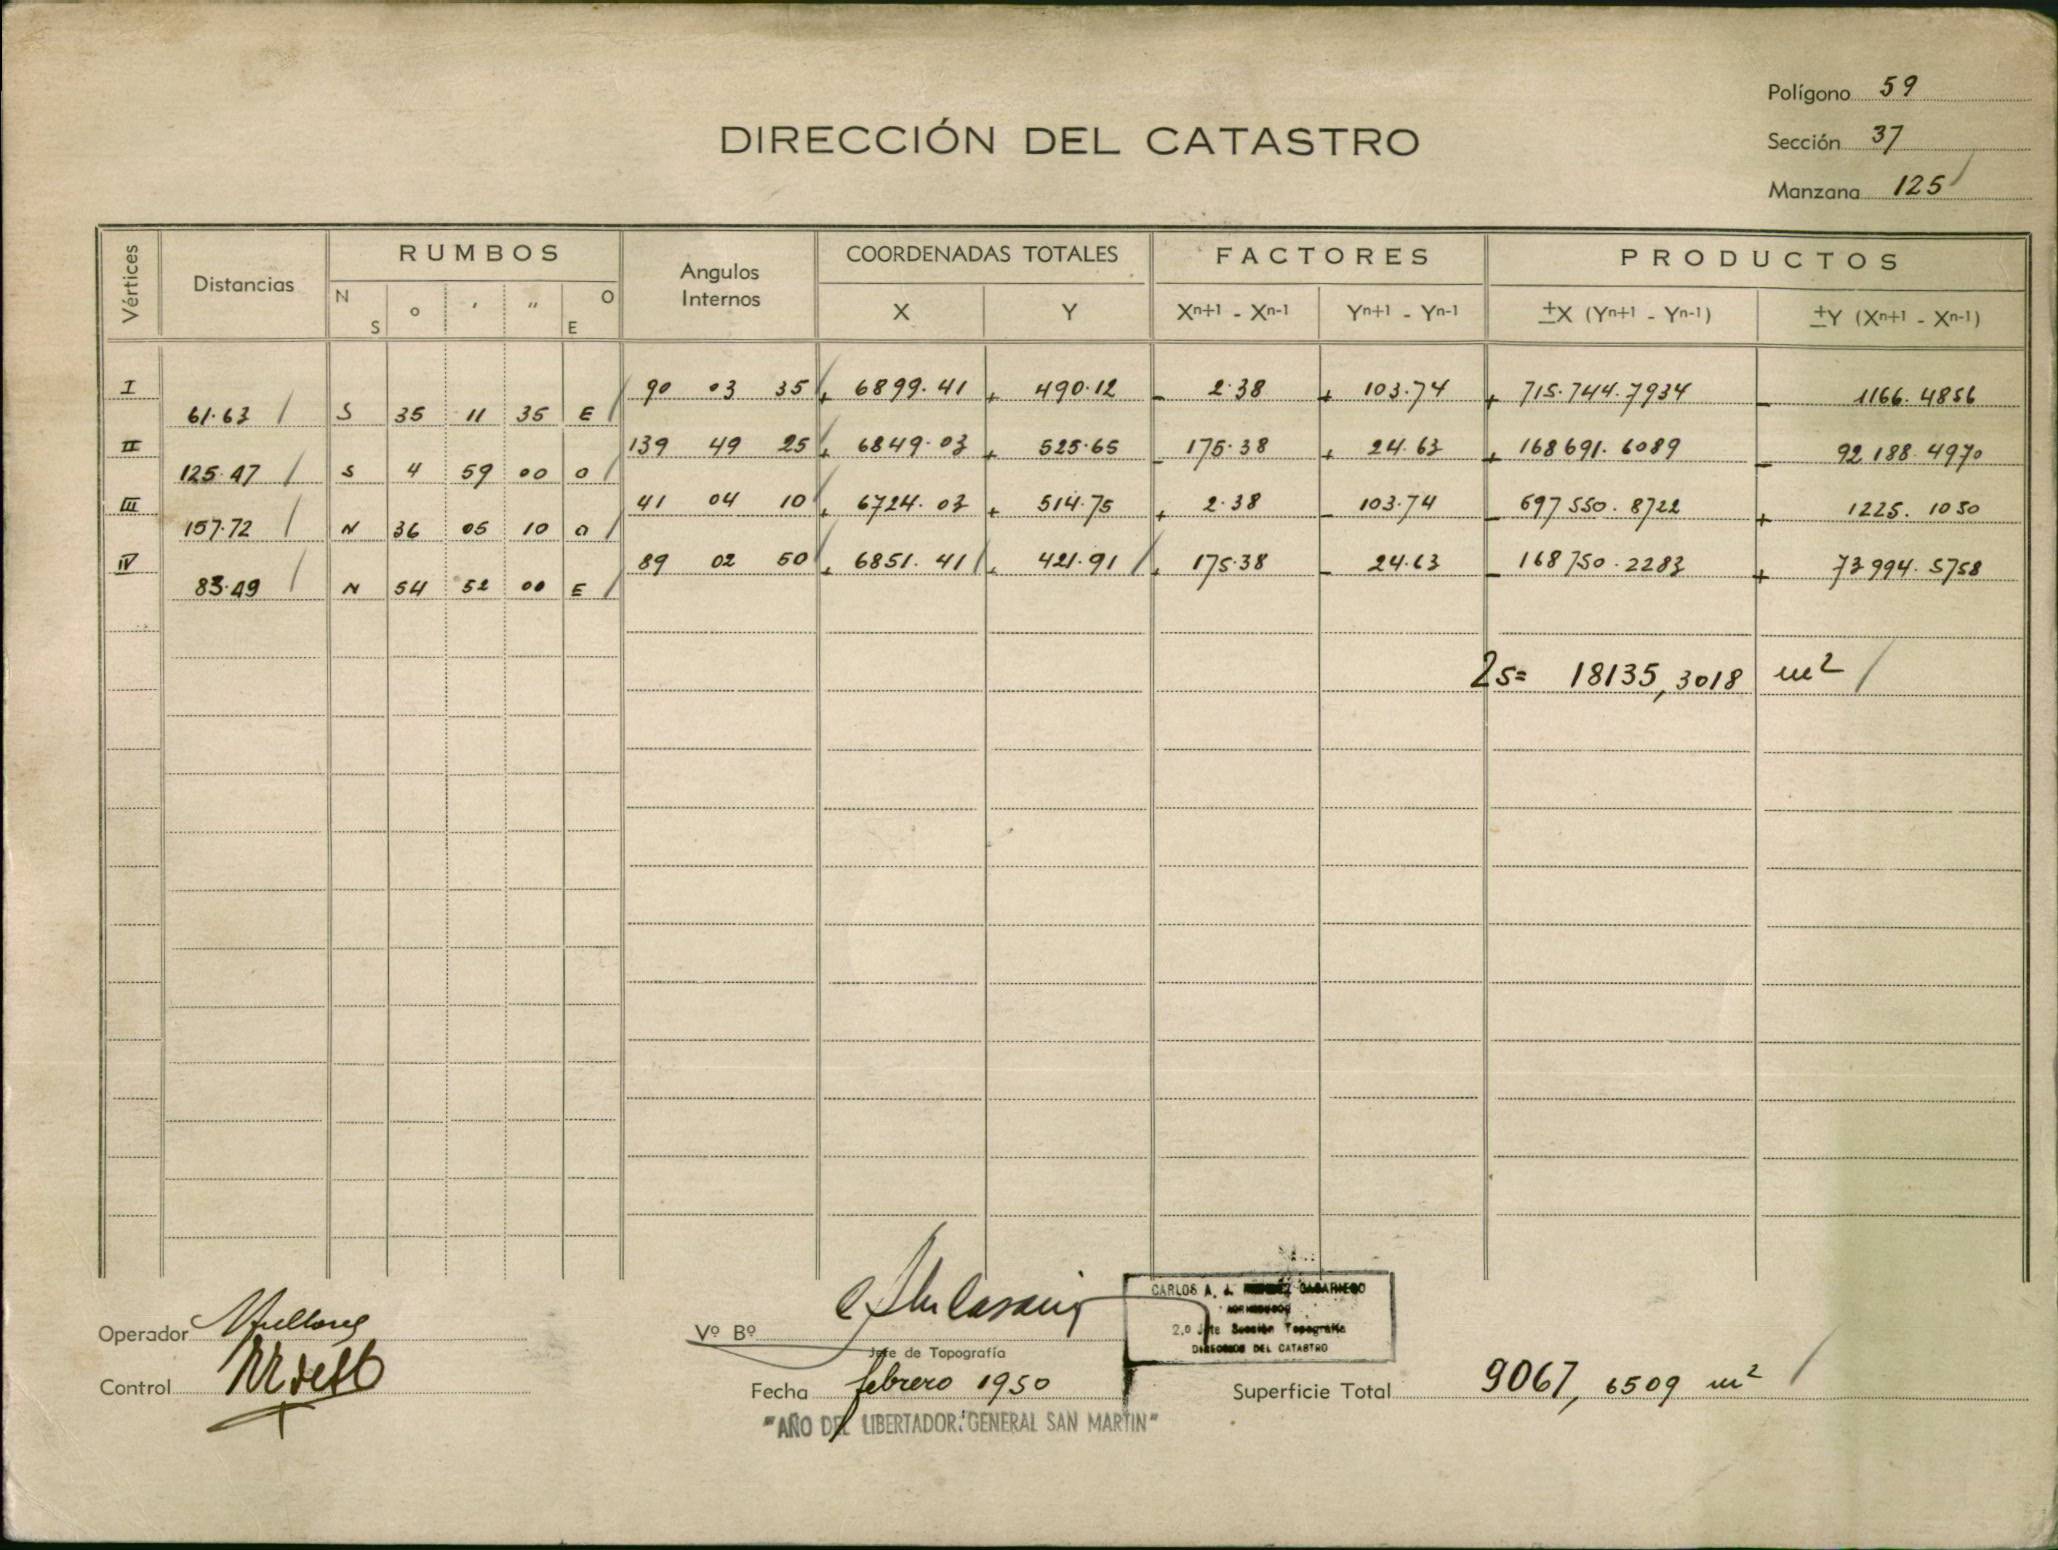 Polígono 59
DIRECCIÓN DEL CATASTRO
Sección 37
Manzana 125
Vértices Distancias RUMBOS Angulos Internos COORDENADAS TOTALES FACTORES PRODUCTOS
N S ° ' " O E X Y Xn+1 - Xn-1 Yn+1 - Yn-1 ±X (Yn+1 - Yn-1) ±Y (Xn+1 - Xn-1)
I 90 03 35 + 6899.41 + 490.12 - 2.38 + 103.74 + 715.744.7934 - 1166.4856
61.63 S 35 11 35 E
II 139 49 25 + 6849.03 + 525.65 - 175.38 + 24.63 + 168691.6089 - 92188.4970
125.47 S 4 59 00 O
III 41 04 10 + 6724.03 + 514.75 + 2.38 - 103.74 - 697550.8722 + 1225.1050
157.72 N 36 05 10 O
IV 89 02 50 + 6851.41 + 421.91 + 175.38 - 24.63 - 168750.2283 + 73994.5758
83.49 N 54 52 00 E
2s= 18135,3018 m2
CARLOS A. J.
2.º Jefe Sección Topografía
DIRECCION DEL CATASTRO
Operador
Vº Bº
Jefe de Topografía
Control
Fecha febrero 1950
Superficie Total 9067,6509 m2
"AÑO DEL LIBERTADOR GENERAL SAN MARTIN"